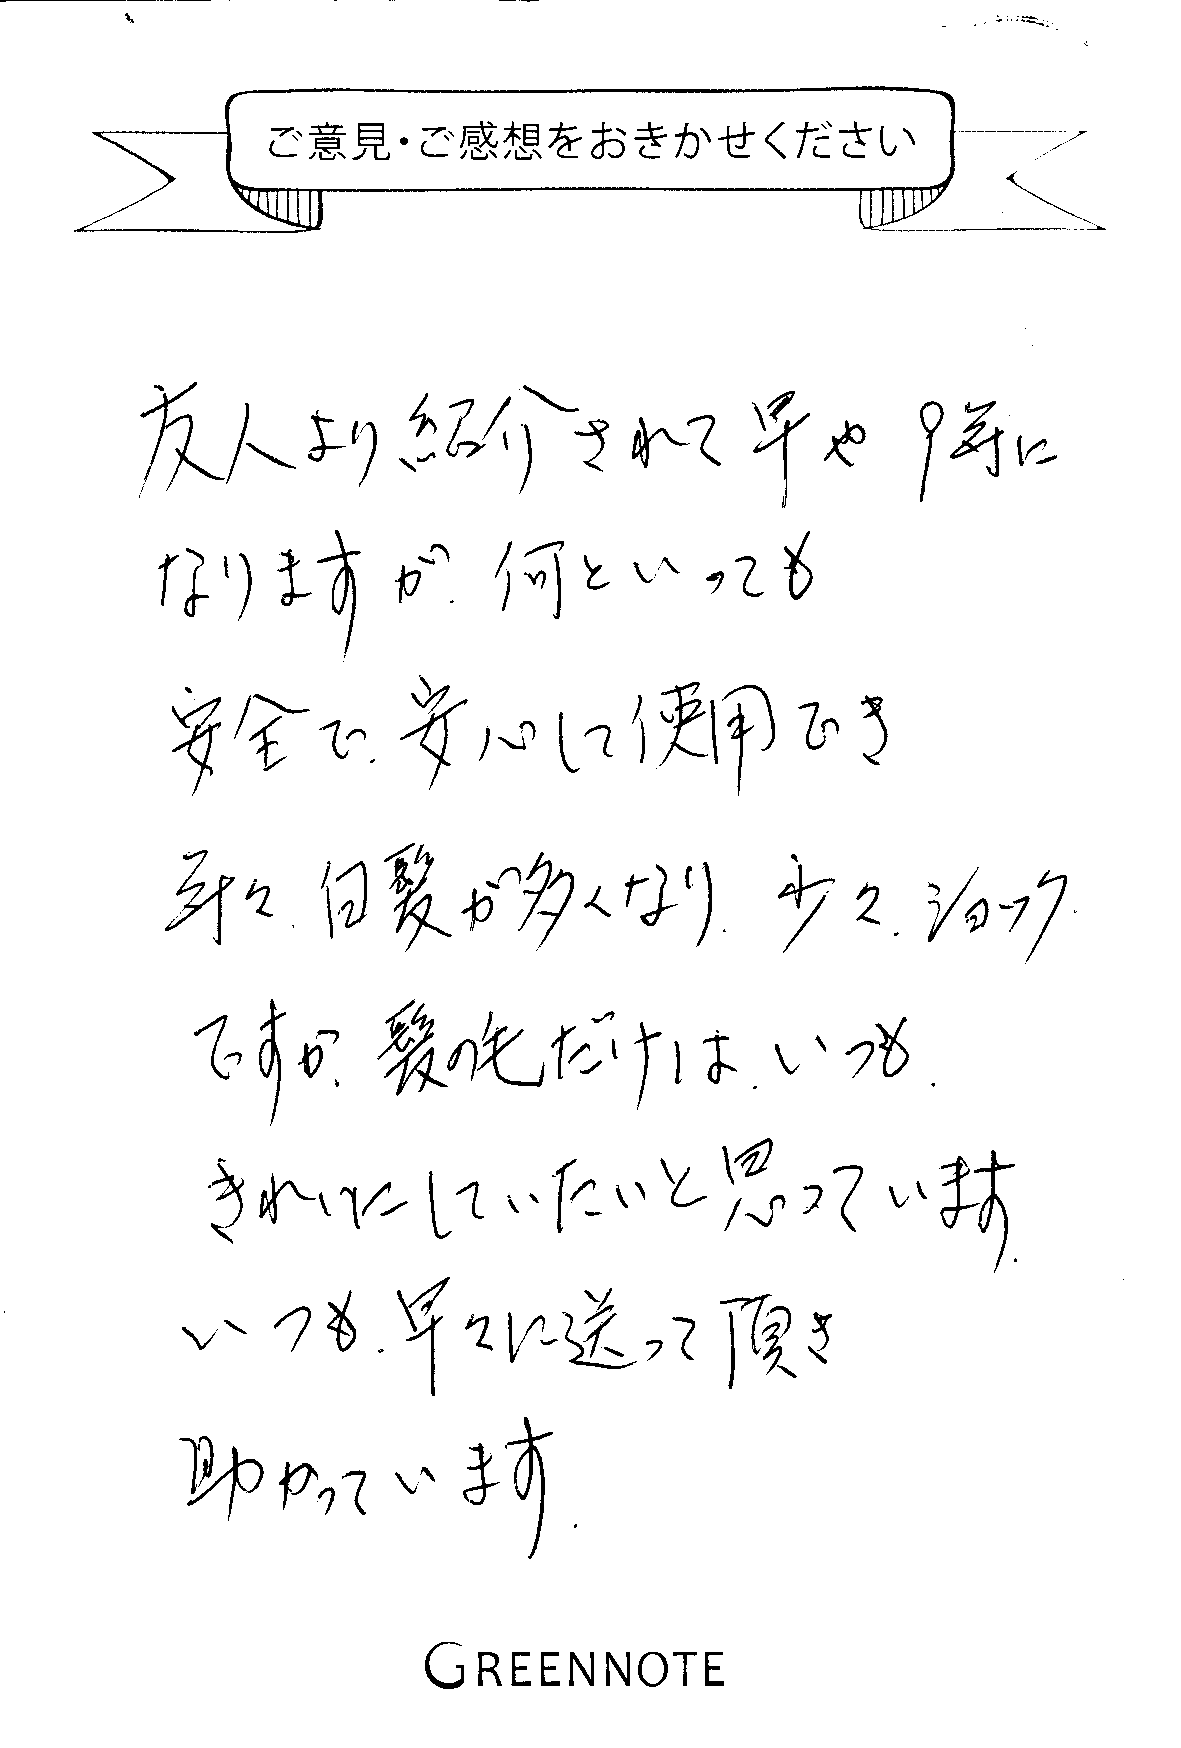 ご意見・ご感想をおきかせください
友人より紹介されて早や9年に
なりますが、何といっても
安全で、安心して使用でき
年々、白髪が多くなり、少々、ショック
ですが、髪の毛だけは、いつも、
きれいにしていたいと思っています。
いつも、早々に送って頂き
助かっています。
GREENNOTE